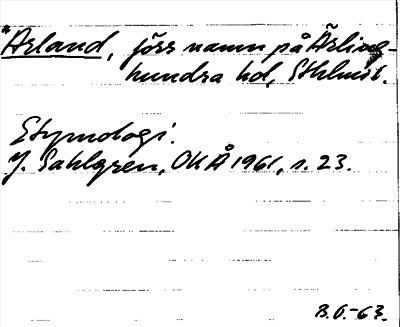 *Arland, förr namn på Ärling-
hundra hd, Sthlms l.
Etymologi.
J. Sahlgren, OKÅ 1961, s. 23.
B.O.-63.